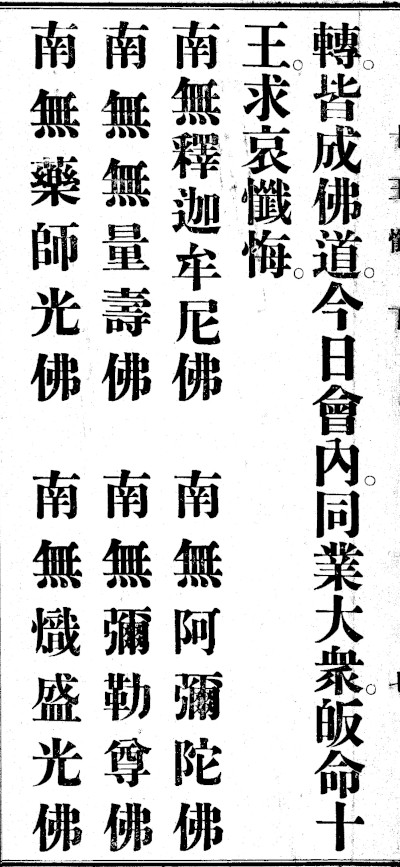 轉。皆成佛道。今日會內。同業大衆。皈命十
王。求哀懺悔。
南無釋迦牟尼佛 南無阿彌陀佛
南無無量壽佛 南無彌勒尊佛
南無藥師光佛 南無熾盛光佛